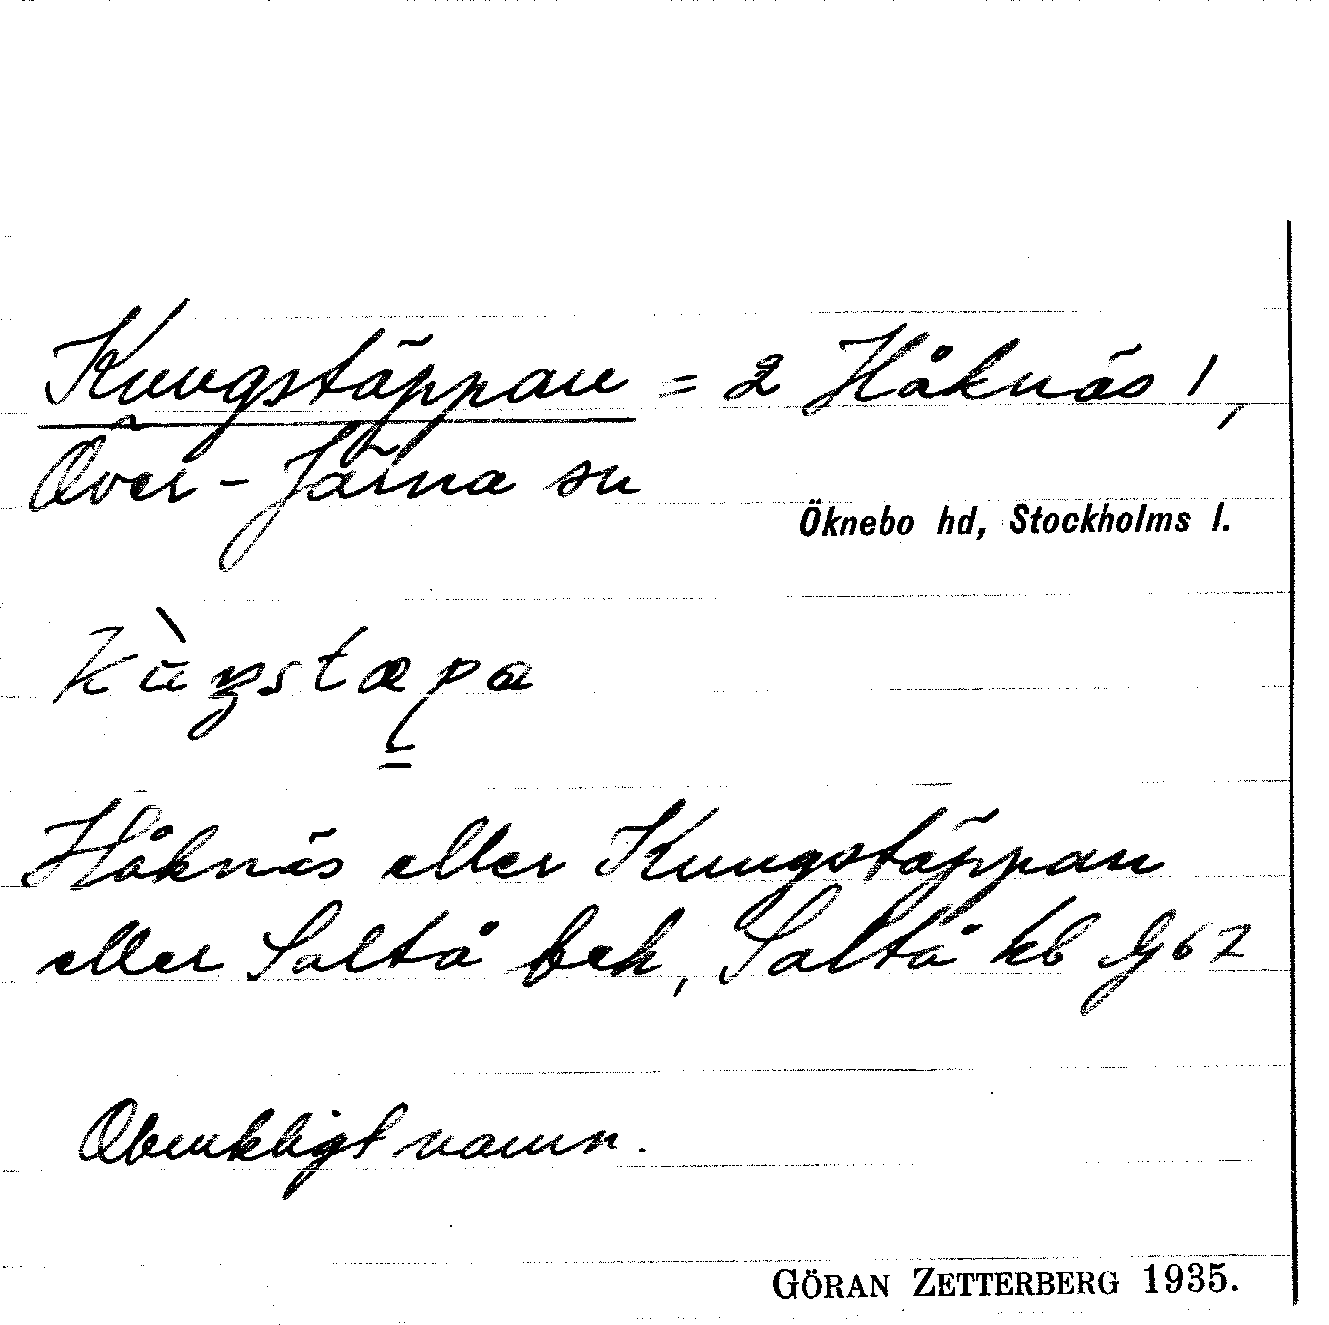 Kungstäppan = 2 Håknäs 1,
Över-Järna sn
Öknebo hd, Stockholms l.
Håknäs eller Kungstäppan
eller Saltå beh, Saltå kb
Obrukligt namn.
GÖRAN ZETTERBERG 1935.